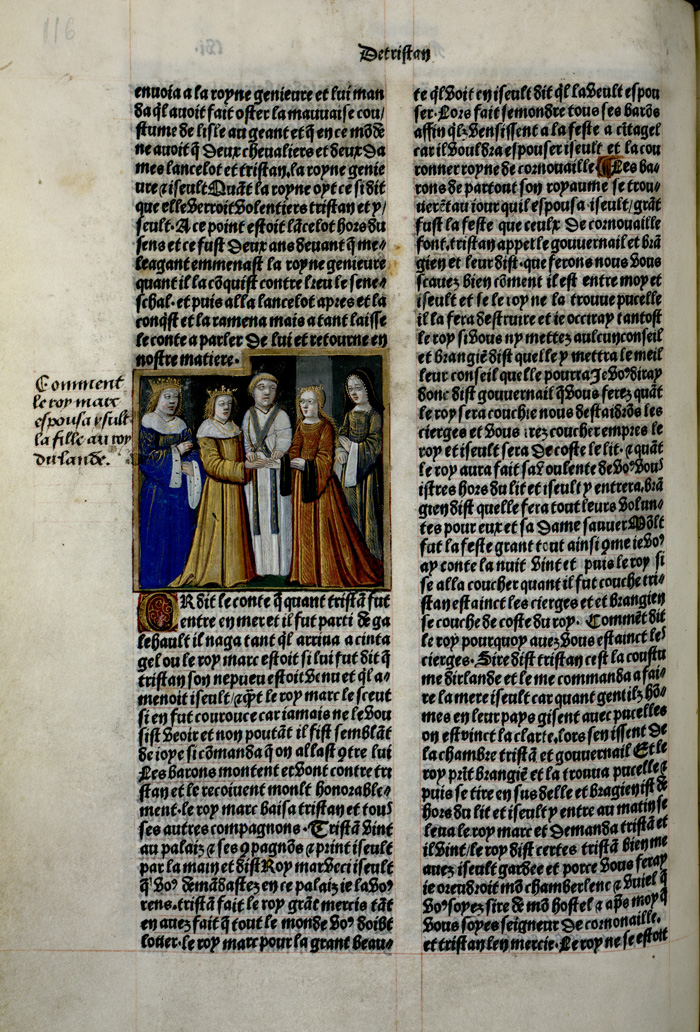 116
De tristan
enuoia a la royne genieure et lui man
da ql auoit fait oster la mauuaise cou/
stume de lisle au geant et q̃ en ce mõde
ne auoit q̃ deux cheualiers et deux da
mes lancelot et tristan, la royne genie
ure ⁊ iseult Quãt la royne oyt ce si dit
que elle verroit volentiers tristan et y/
seult. A ce point estoit lãcelot hors du
sens et ce fust deux ans deuant q̃ me⸗
leagant emmenast la royne genieure
quant il la cõquist contre lieu le sene⸗
schal. et puis alla lancelot apres et la
conqst et la ramena mais a tant laisse
le conte a parler de lui et retourne en
nostre matiere.
Comment
le roy marc
espousa yseult
la fille au roy
dirlande.
OR dit le conte q̃ quant tristã fut
entre en mer et il fut parti de ga
lehault il naga tant ql arriua a cinta
gel ou le roy marc estoit si lui fut dit q̃
tristan son nepueu estoit venu et ql a⸗
menoit iseult/ ⁊ qñt le roy marc le sceut
si en fut courouce car iamais ne le vou
sist veoir et non poutãt il fist semblãt
de ioye si cõmanda q̃ on allast ꝯtre lui
Les barons montent et vont contre tri
stan et le recoiuent moult honorable⸗
ment. le roy marc baisa tristan et tous
ses autres compagnons. Tristã vint
au palaiz ⁊ ses ꝯpagnõs ⁊ print iseult
par la main et dist Roy marc veci iseult
q̃ voꝰ demãdastez en ce palaiz ie la voꝰ
rens. tristã fait le roy grãt mercis tãt
en auez fait q̃ tout le monde voꝰ doibt
louer. le roy marc pour la grant beau⸗
te ql voit en iseult dit ql la veult espou
ser. Lors fait semondre tous ses barõs
affin qlz vensissent a la feste a citagel
car il vouldra espouser iseult et la cou
ronner royne de cornouaille ¶ Les ba⸗
rons de partout son royaume se trou⸗
uerẽt au iour quil espousa iseult/ grãt
fust la feste que ceulx de cornouaille
font, tristan appelle gouuernail et brã
gien et leur dist. que ferons nous vous
scauez bien cõment il est entre moy et
iseult et se le roy ne la trouue pucelle
il la fera destruire et ie occiray tantost
le roy si vous ny mettez aulcun conseil
et brangiẽ dist quelle y mettra le meil
leur conseil quelle pourra Je voꝰ diray
donc dist gouuernail q̃ vous ferez quãt
le roy sera couchie nous destaidrõs les
cierges et vous irez coucher empres le
roy et iseult sera de coste le lit. ⁊ quãt
le roy aura fait sa voulente de voꝰ vous
istres hors du lit et iseult y entrera. brã
gien dist quelle fera tout leurs volun⸗
tes pour eux et sa dame sauuer Mõlt
fut la feste grant tout ainsi ꝯme ie voꝰ
ay conte la nuit vint et puis le roy si
se alla coucher quant il fut couche tri⸗
stan estainct les cierges et et brangien
se couche de coste du roy. Commẽt dit
le roy pourquoy auez vous estainct les
cierges. Sire dist tristan cest la coustu
me dirlande et le me commanda a fai⸗
re la mere iseult car quant gentilz hõ⸗
mes en leur pays gisent auec pucelles
on estinct la clarte, lors sen issent de
la chambre tristã et gouuernail Et le
roy prĩt brangiẽ et la trouua pucelle ⁊
puis se tire en sus delle et bragien ist de
hors du lit et iseult y entre au matin se
leua le roy marc et demanda tristã et
il vint/ le roy dist certes tristã bien me
auez iseult gardee et por ce vous feray
ie orendroit mõ chamberlenc ⁊ vuiel q̃
voꝰ soyez sire de mõ hostel ⁊ aps̃ moy q̃
vous soyes seigneur de cornouaille.
et tristan len mercie. Le roy ne se estoit